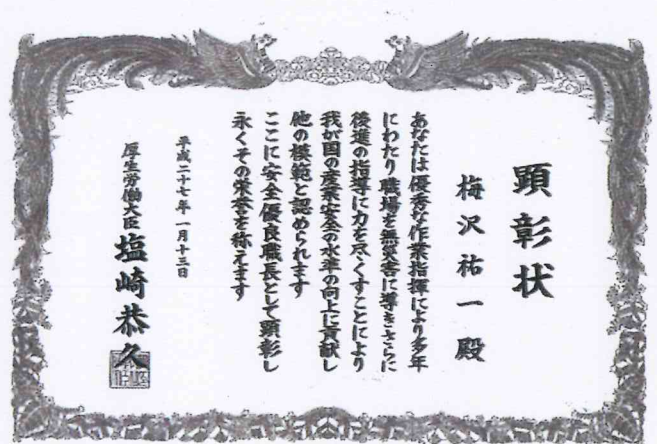 顕彰状
梅沢祐一殿
あなたは優秀な作業指揮により多年
にわたり職場を無災害に導きさらに
後進の指導に力を尽くすことにより
我が国の産業安全の水準の向上に貢献し
他の模範と認められます
ここに安全優良職長として顕彰し
永くその栄誉を称えます
平成二十七年一月十三日
厚生労働大臣 塩崎恭久